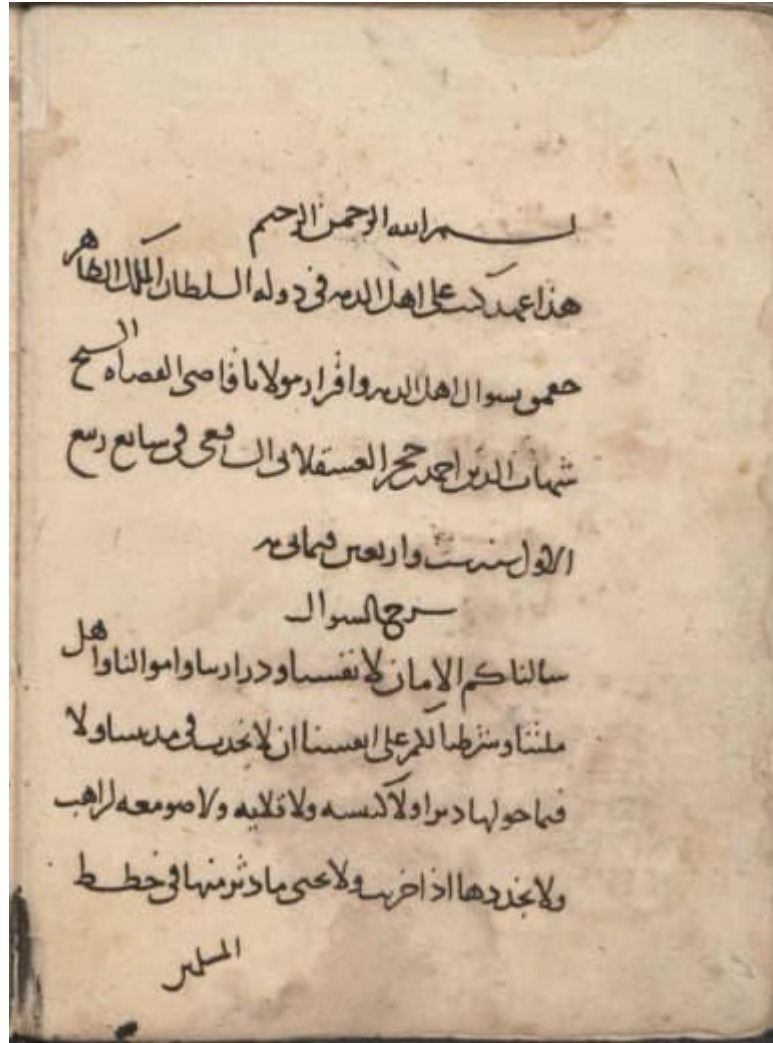 بسم الله الرحمن الرحيم
هذا عهد كتب على اهل الذمه فى دولة السلطان الملك الظاهر
جقمق بسوال اهل الذمه واقرار مولانا قاضى القضاه الشيخ
شهاب الدين احمد حجر العسقلانى الشافعى فى سابع ربيع
الاول سنه ست واربعين وثمانى مه
شرح السوال
سالناكم الامان لانفسنا ودرارينا واموالنا واهل
ملتنا وشرطنا لكم على انفسنا ان لا نحدث فى مدينتنا ولا
فيما حولها ديرا ولا كنيسه ولا قلايه ولا صومعه لراهب
ولا نجددها اذا خربت ولا نحى ما دثر منها فى خطط
المسلمين